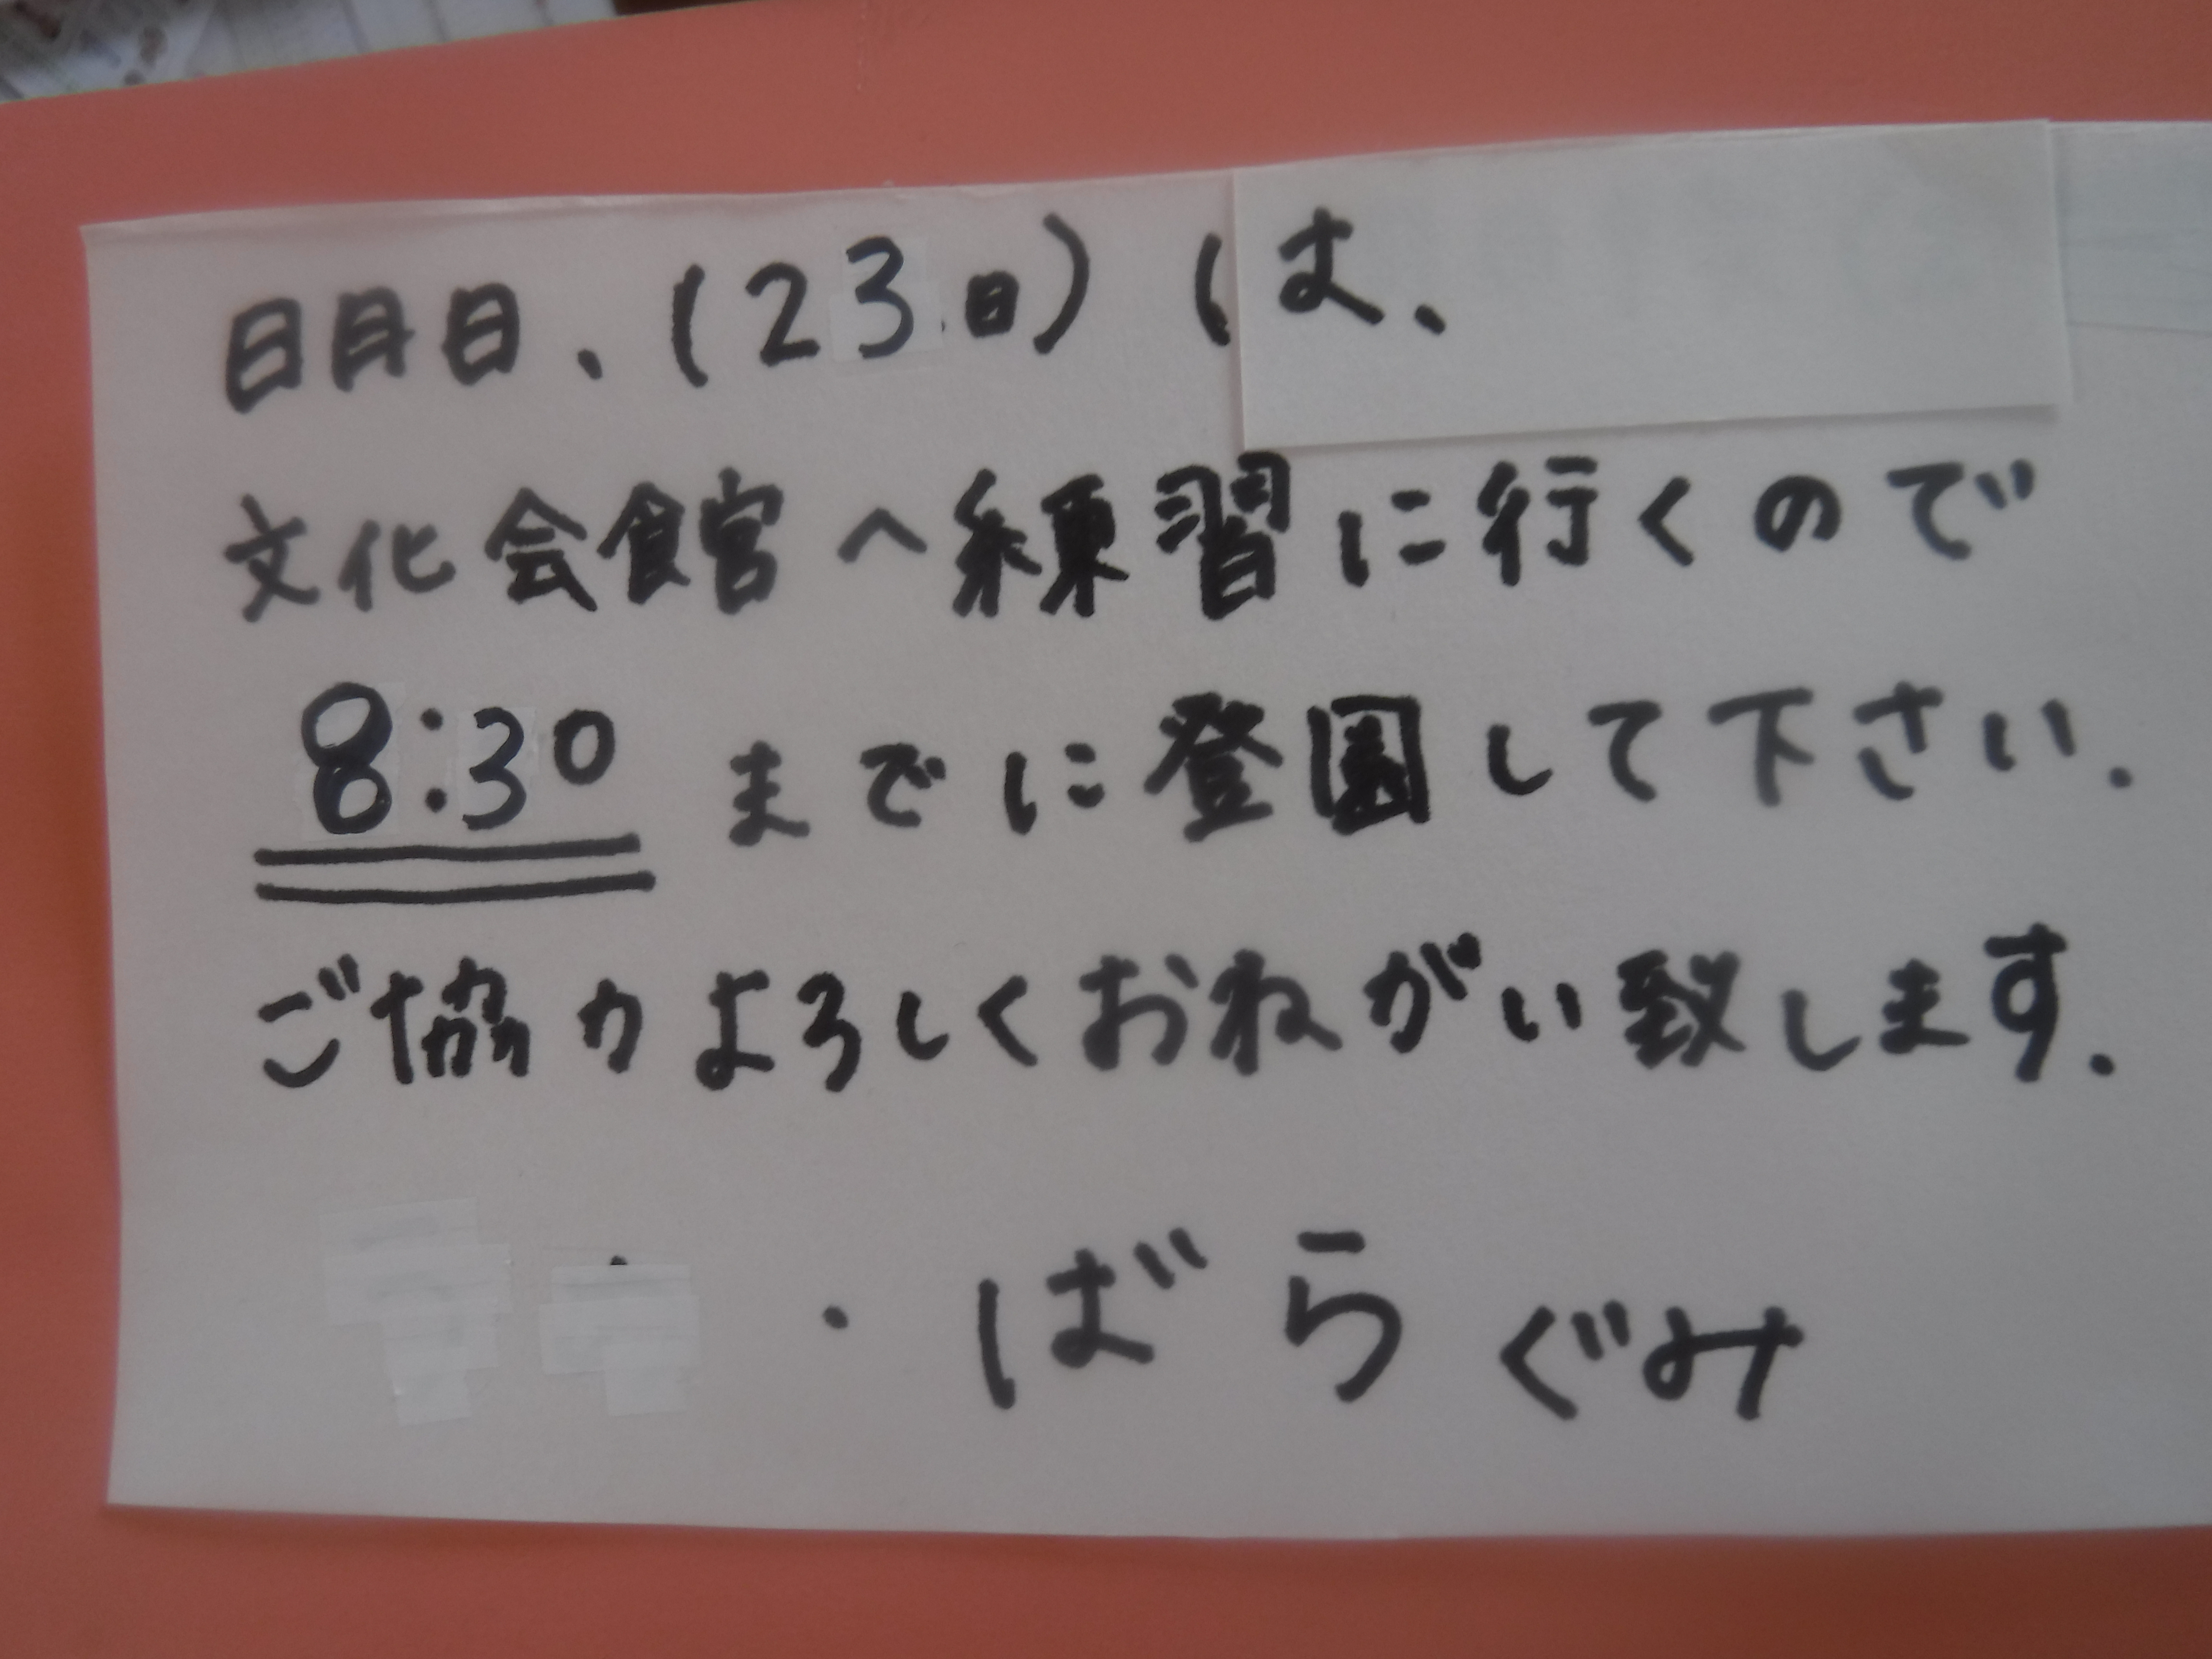 明日、(23日)は、
文化会館へ練習に行くので
8:30までに登園して下さい.
ご協力よろしくおねがい致します.
・ばらぐみ